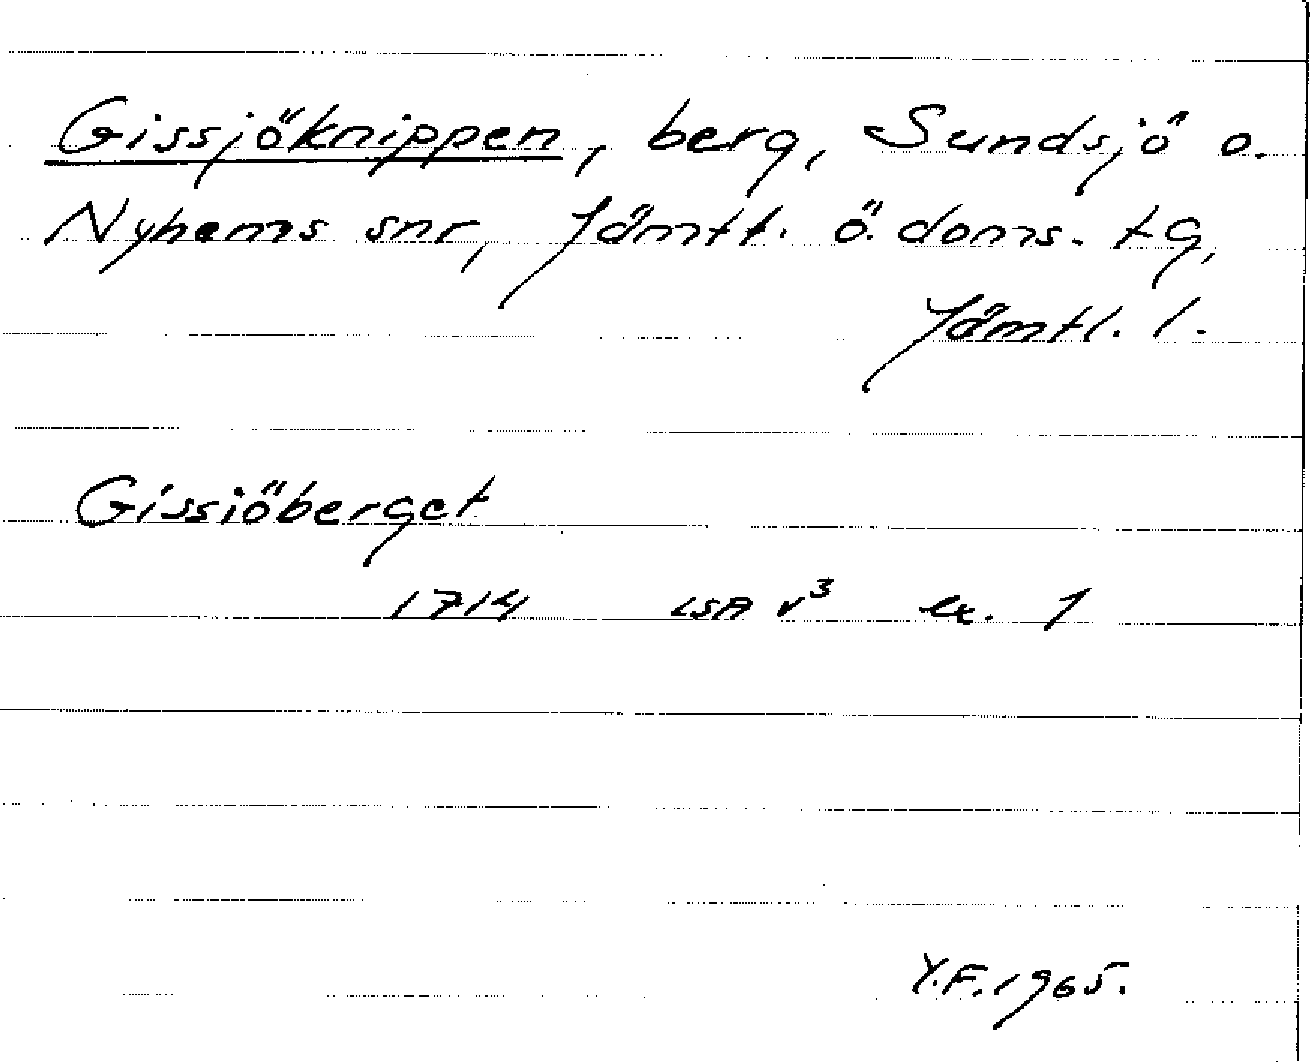 Gissjöknippen, berg, Sundsjö o.
Nyhems snr, Jämtl. ö. doms. tg,
Jämtl. l.
Gissiöberget
1714 LSA v³ ex. 1
Y.F. 1965.